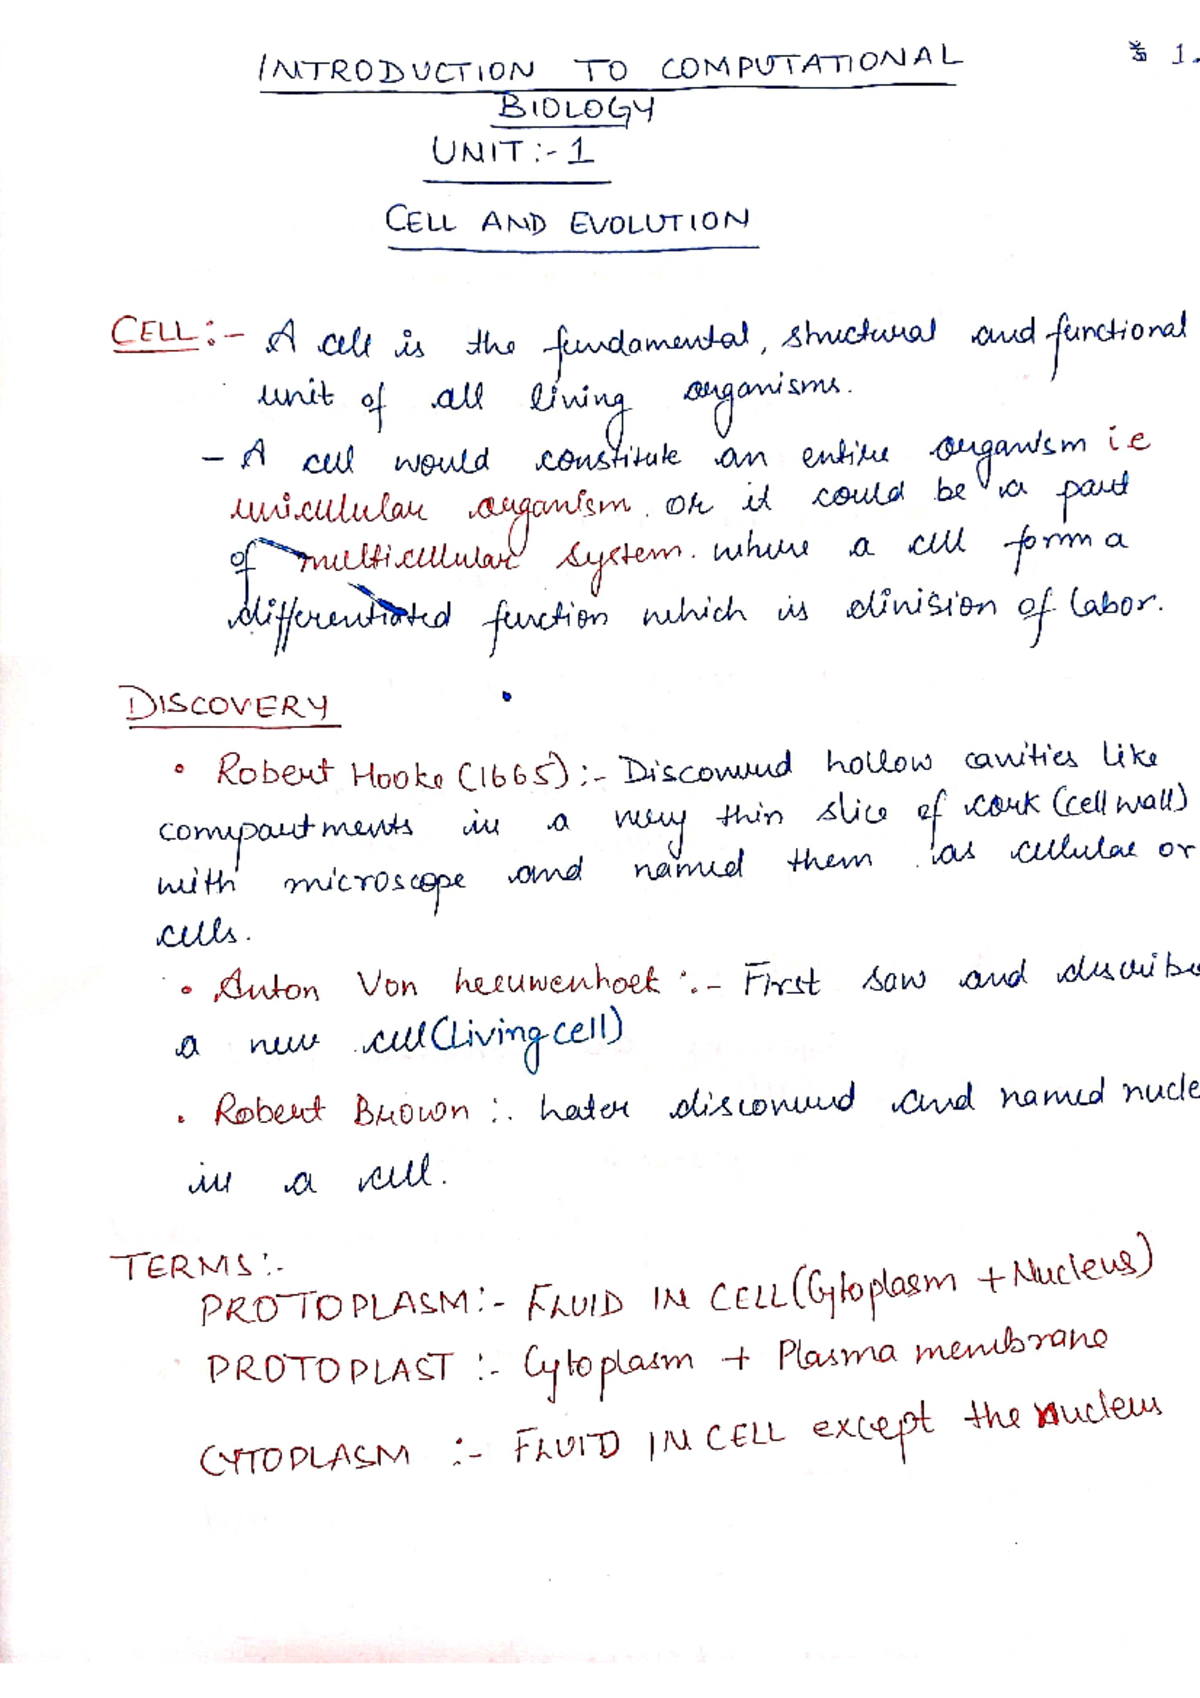 INTRODUCTION TO COMPUTATIONAL
1.
BIOLOGY
UNIT:-1
CELL AND EVOLUTION
CELL:- A cell is the fundamental, structural and functional
unit of all living organisms.
- A cell would constitute an entire organism i e
unicellular organism. or it could be a part
of multicellular system. where a cell form a
differentiated function which is division of labor.
DISCOVERY
• Robert Hooke (1665):- Discovered hollow cavities like
compartments in a very thin slice of cork (cell wall)
with microscope and named them as cellulae or
cells.
• Anton Von Leeuwenhoek :- First saw and describe
a new cell (Living cell)
• Robert Brown :. Later discovered and named nucle
in a cell.
TERMS:-
PROTOPLASM:- FLUID IN CELL (Cytoplasm + Nucleus)
PROTOPLAST :- Cytoplasm + Plasma membrane
CYTOPLASM :- FLUID IN CELL except the nucleus